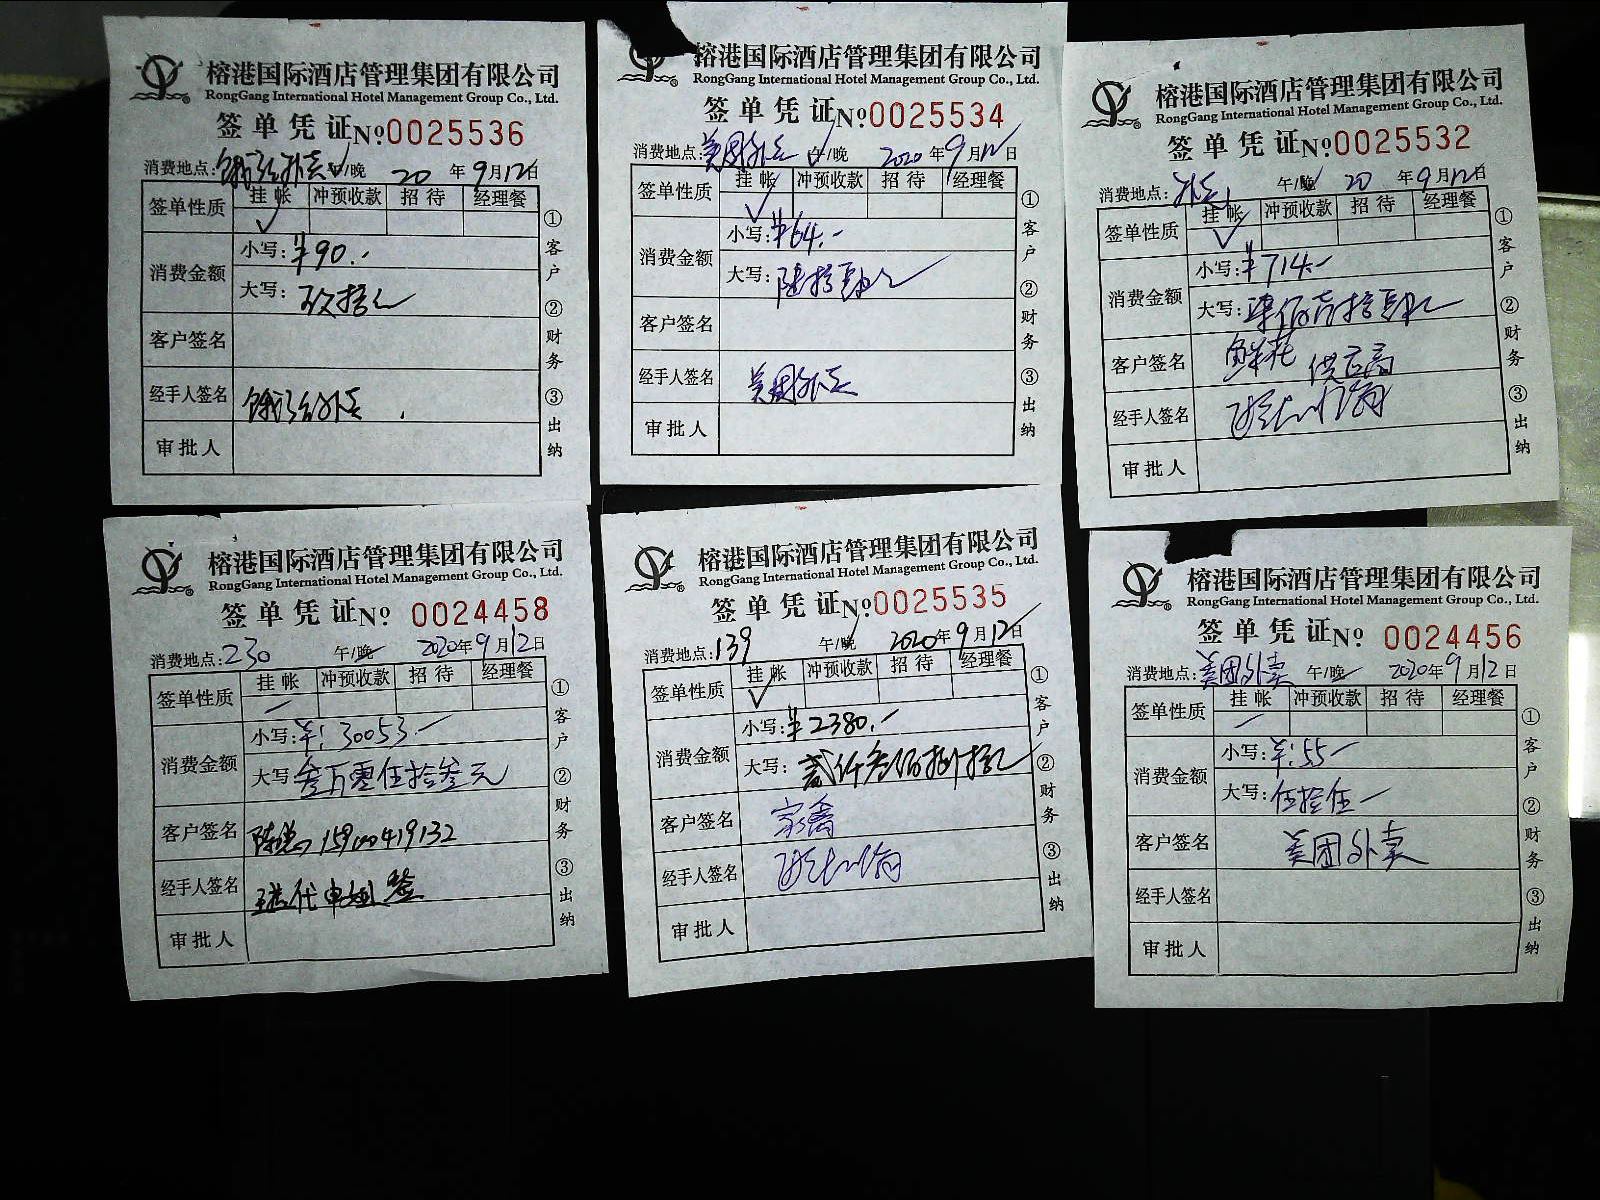 榕港国际酒店管理集团有限公司
RongGang International Hotel Management Group Co., Ltd.
签单凭证 №0025536
消费地点:饿了么外卖 午/晚 20 年9月12日
签单性质 挂帐 冲预收款 招待 经理餐
消费金额 小写:¥90.-
大写:玖拾元
客户签名
经手人签名 饿了么外卖
审批人
①客户 ②财务 ③出纳
榕港国际酒店管理集团有限公司
RongGang International Hotel Management Group Co., Ltd.
签单凭证 №0025534
消费地点:美团外卖 午/晚 2020年9月12日
签单性质 挂帐 冲预收款 招待 经理餐
消费金额 小写:¥64.-
大写:陆拾肆元
客户签名
经手人签名 美团外卖
审批人
①客户 ②财务 ③出纳
榕港国际酒店管理集团有限公司
RongGang International Hotel Management Group Co., Ltd.
签单凭证 №0025532
消费地点:外卖 午/晚 20 年9月12日
签单性质 挂帐 冲预收款 招待 经理餐
消费金额 小写:¥714.-
大写:柒佰壹拾肆元
客户签名 鲜花 供应商
经手人签名
审批人
①客户 ②财务 ③出纳
榕港国际酒店管理集团有限公司
RongGang International Hotel Management Group Co., Ltd.
签单凭证 № 0024458
消费地点:230 午/晚 2020年9月12日
签单性质 挂帐 冲预收款 招待 经理餐
消费金额 小写:¥:30053.-
大写 叁万零伍拾叁元
客户签名 陈 15900419132
经手人签名 代 签
审批人
①客户 ②财务 ③出纳
榕港国际酒店管理集团有限公司
RongGang International Hotel Management Group Co., Ltd.
签单凭证 №0025535
消费地点:139 午/晚 2020年9月12日
签单性质 挂帐 冲预收款 招待 经理餐
消费金额 小写:¥2380.-
大写:贰仟叁佰捌拾元
客户签名 家禽
经手人签名
审批人
①客户 ②财务 ③出纳
榕港国际酒店管理集团有限公司
RongGang International Hotel Management Group Co., Ltd.
签单凭证 № 0024456
消费地点:美团外卖 午/晚 2020年9月12日
签单性质 挂帐 冲预收款 招待 经理餐
消费金额 小写:¥:55-
大写:伍拾伍-
客户签名 美团外卖
经手人签名
审批人
①客户 ②财务 ③出纳